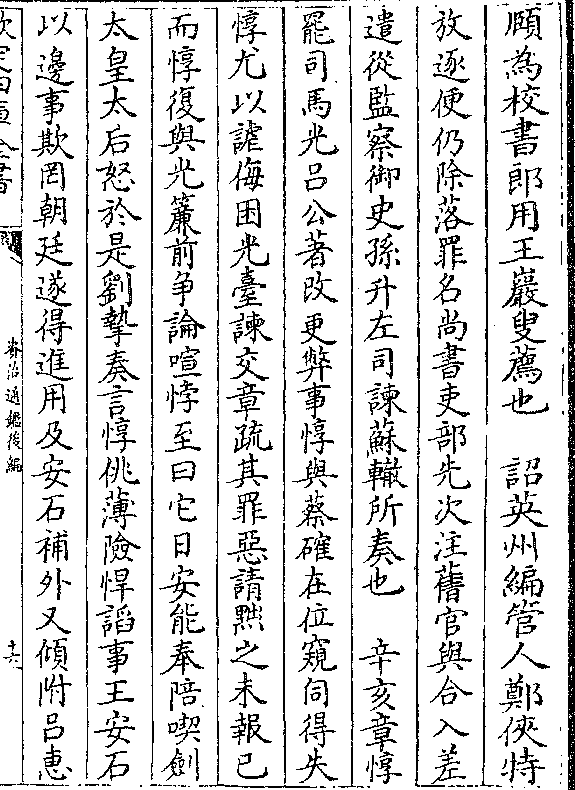 頤為校書郎用王巖叟薦也　詔英州編管人鄭俠特
放逐便仍除落罪名尚書吏部先次注舊官與合入差
遣從監察御史孫升左司諫蘇轍所奏也　辛亥章惇
罷司馬光吕公著改更弊事惇與蔡確在位窺伺得失
惇尤以謔侮困光臺諫交章疏其罪惡請黜之未報已
而惇復與光簾前争論喧悖至曰它日安能奉陪喫劍
太皇太后怒於是劉摯奏言惇佻薄險悍諂事王安石
以邊事欺罔朝廷遂得進用及安石補外又傾附吕惠
欽定四庫全書
資治通鑑後編
十六